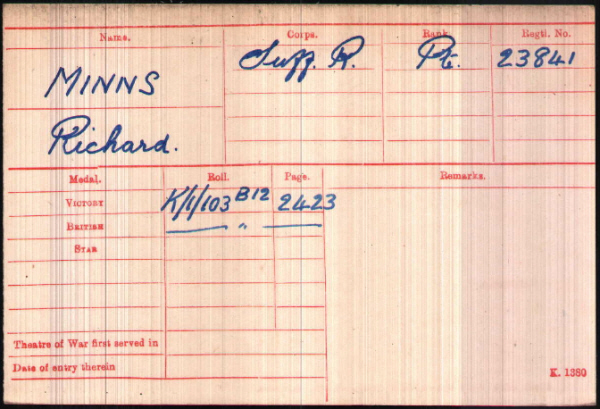 Name. Corps. Rank. Regtl. No.
MINNS Suff. R. Pte. 23841
Richard.
Medal. Roll. Page. Remarks.
VICTORY K/1/103 B12 2423
BRITISH — " —
STAR
Theatre of War first served in
Date of entry therein
K. 1380